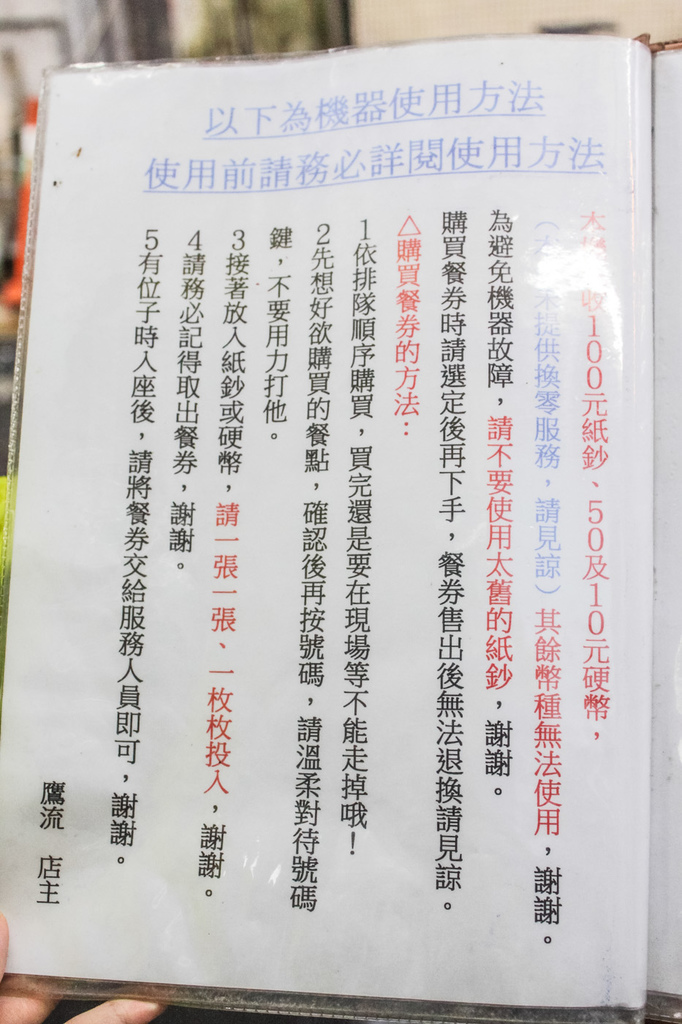 以下為機器使用方法
使用前請務必詳閱使用方法
收100元紙鈔、50及10元硬幣，
提供換零服務，請見諒）其餘幣種無法使用，謝謝。
為避免機器故障，請不要使用太舊的紙鈔，謝謝。
購買餐券時請選定後再下手，餐券售出後無法退換請見諒。
△購買餐券的方法：
1依排隊順序購買，買完還是要在現場等不能走掉哦！
2先想好欲購買的餐點，確認後再按號碼，請溫柔對待號碼
鍵，不要用力打他。
3接著放入紙鈔或硬幣，請一張一張、一枚枚投入，謝謝。
4請務必記得取出餐券，謝謝。
5有位子時入座後，請將餐券交給服務人員即可，謝謝。
鷹流 店主